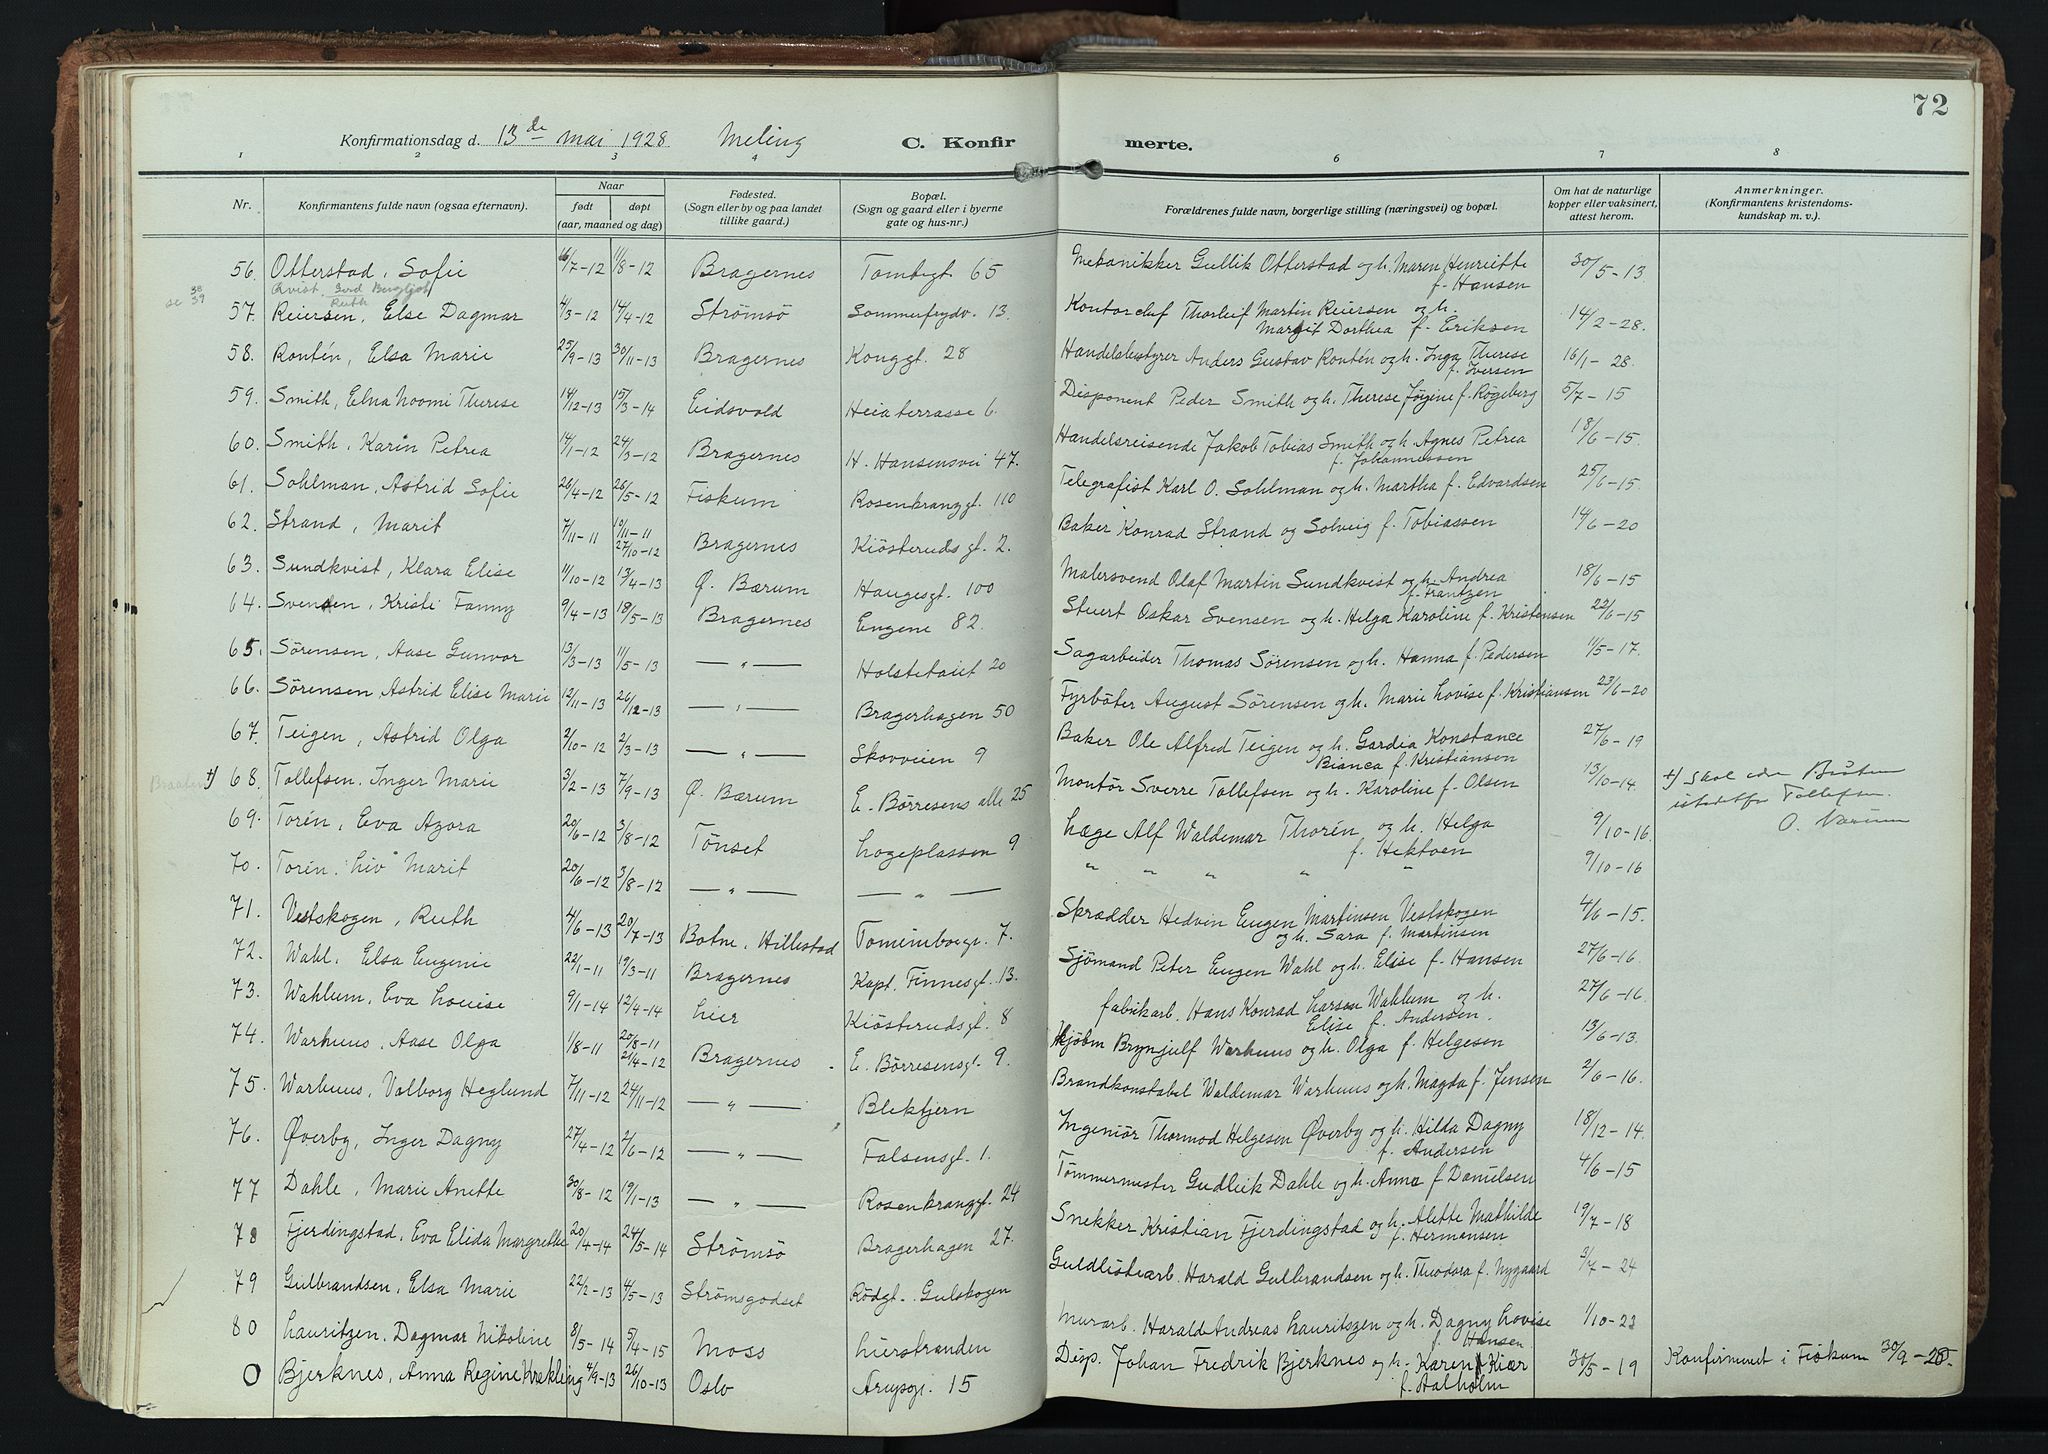 72
Konfirmationsdag d. 13de mai 1928 Meling C. Konfirmerte.
1 2 3 4 6 7 8
Nr. Konfirmantens fulde navn (ogsaa efternavn). Naar født døpt (aar, maaned og dag) Fødested. (Sogn eller by og paa landet tillike gaard.) Bopæl. (Sogn og gaard eller i byerne gate og hus-nr.) Forældrenes fulde navn, borgerlige stilling (næringsvei) og bopæl. Om hat de naturlige kopper eller vaksinert, attest herom. Anmerkninger. (Konfirmantens kristendomskundskap m. v.).
56. Otterstad, Sofie 16/7-12 11/8-12 Bragernes Tomtegt. 65 Mekanikker Gullik Otterstad og h. Maren Henriette f. Hansen 30/5-13
se 38 39 Qvist Gerd Bergljot Ruth
57. Reiersen, Else Dagmar 4/3-12 14/4-12 Strömsö Sommerfrydv. 13. Kontorchef Thorleif Martin Reiersen og h. Margit Dorthea f. Eriksen 14/2-28.
58. Rontén, Elsa Marie 25/9-13 30/11-13 Bragernes Konggt. 28 Handelsbestyrer Anders Gustav Rontén og h. Inga Therese f. Iversen 16/1-28.
59. Smith, Elna Noomi Therese 14/12-13 15/3-14 Eidsvold Heiaterrasse 6. Disponent Peder Smith og h. Therese Jørgine f. Røgeberg 5/7-15
60. Smith, Karin Petrea 14/1-12 24/3-12 Bragernes H. Hansensvei 47. Handelsreisende Jakob Tobias Smith og h. Agnes Petrea f. Johannessen 18/6-15.
61. Sohlman, Astrid Sofie 26/4-12 26/5-12 Fiskum Rosenkranggt. 110 Telegrafist Karl O. Sohlman og h. Martha f. Edvardsen 25/6-15.
62. Strand, Marit 7/11-11 19/11-11 27/10-12 Bragernes Kiösterudsgt. 2. Baker Konrad Strand og Solveig f. Tobiassen 14/6-20
63. Sundkvist, Klara Elise 11/10-12 13/4-13 Ø. Bærum Haugesgt. 100 Malersvend Olaf Martin Sundkvist og h. Andrea f. Frantzen 18/6-15
64. Svensen, Kristi Fanny 9/4-13 18/5-13 Bragernes Engene 82. Stuert Oskar Svensen og h. Helga Karoline f. Kristensen 22/6-15
65. Sörensen, Aase Gunvor 13/3-13 11/5-13 — " — Holstetaiet 20 Sagarbeider Thomas Sørensen og h. Hanna f. Pedersen 11/5-17.
66. Sörensen, Astrid Elise Marie 12/11-13 26/12-13 — " — Bragerhagen 50 Fyrböter August Sörensen og h. Marie Lovise f. Kristiansen 23/6-20
67. Teigen, Astrid Olga 2/10-12 2/3-13 — " — Skovveien 9 Baker Ole Alfred Teigen og h. Gardia Konstance Bianca f. Kristiansen 27/6-19
Braaten +) 68. Tollefsen, Inger Marie 3/2-13 7/9-13 Ø. Bærum E. Börresens alle 25 Montör Sverre Tollefsen og h. Karoline f. Olsen 13/10-14. +) skal ede Bråten istedetfor Tollefsen. O. Nærum
69. Torén, Eva Azora 20/6-12 3/8-12 Tönset Logeplassen 9 Læge Alf Waldemar Thorén og h. Helga f. Hektoen 9/10-16.
70. Torén, Liv Marit 20/6-12 3/8-12 — " — — " — " " " " " 9/10-16
71. Vestskogen, Ruth 4/6-13 20/7-13 Botne, Hillestad Tomineborgt. 7. Skrædder Hedvin Eugen Martinsen Vestskogen og h. Sara f. Martinsen 4/6-15.
72. Wahl, Elsa Eugenie 22/1-11 19/3-11 Bragernes Kapt. Finnesgt. 13. Sjömand Peter Eugen Wahl og h. Elise f. Hansen 27/6-16.
73. Wahlum, Eva Louise 9/1-14 12/4-14 Lier Kiösterudsgt. 8 Fabrikarb. Hans Konrad Larsen Wahlum og h. Elise f. Andersen. 27/6-16.
74. Warhuus, Aase Olga 1/8-11 20/8-11 21/4-12 Bragernes E. Börresensgt. 9. Kjöbm Brynjulf Warhuus og h. Olga f. Helgesen 13/6-13.
75. Warhuus, Valborg Heglund 7/11-12 24/11-12 — " — Blektjern Brandkonstabel Waldemar Warhuus og h. Magda f. Jensen 2/6-16.
76. Øverby, Inger Dagny 27/4-12 2/6-12 — " — Falsensgt. 1. Ingeniör Thormod Helgesen Øverby og h. Hilda Dagny f. Andersen 18/12-14.
77 Dahle, Marie Anette 30/8-12 19/1-13 — " — Rosenkranggt. 24 Tömmermester Gudleik Dahle og h. Anna f. Danielsen 4/6-15
78 Fjerdingstad, Eva Elida Margrethe 20/4-14 24/5-14 Strömsö Bragerhagen 27. Snekker Kristian Fjerdingstad og h. Alette Mathilde f. Hermansen 19/7-18
79 Gulbrandsen, Elsa Marie 22/2-13 4/5-13 Strömsgodset Rödgt. Gulskogen Guldlistearb. Harald Gulbrandsen og h. Theodora f. Nygaard 3/7-24
80 Lauritzen, Dagmar Nikoline 8/5-14 5/4-15 Moss Lierstranden Murarb. Harald Andreas Lauritszen og h. Dagny Lovise f. Hansen 1/10-23
0 Bjerknes, Anna Regine Kvekling 4/9-13 26/10-13 Oslo Arupsgt. 15 Disp. Johan Fredrik Bjerknes og h. Karen Kiær f. Aalholm 31/5-19 Konfirmeret i Fiskum 30/9-28.